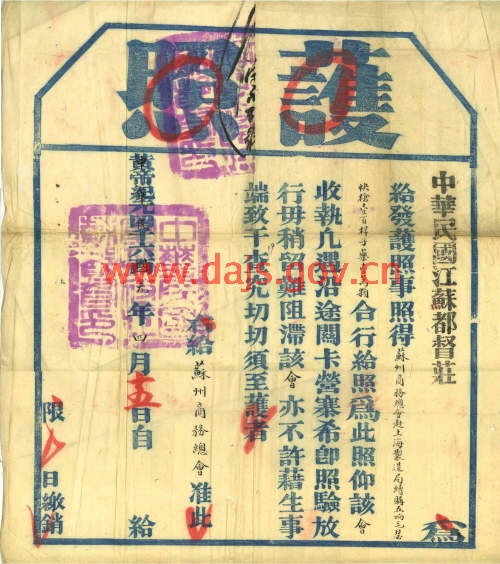 護照
中華民國江蘇都督莊
為
給發護照事照得蘇州商務總會赴上海製造局續購五响毛瑟
快槍壹百桿子藥 顆合行給照為此照仰該會
收執凡遇沿途關卡營寨希卽照驗放
行毋稍留難阻滯該會亦不許藉生事
端致干查究切切須至護者
右給蘇州商務總會准此
年四月十五日自 給
限 日繳銷
www.dajs.gov.cn